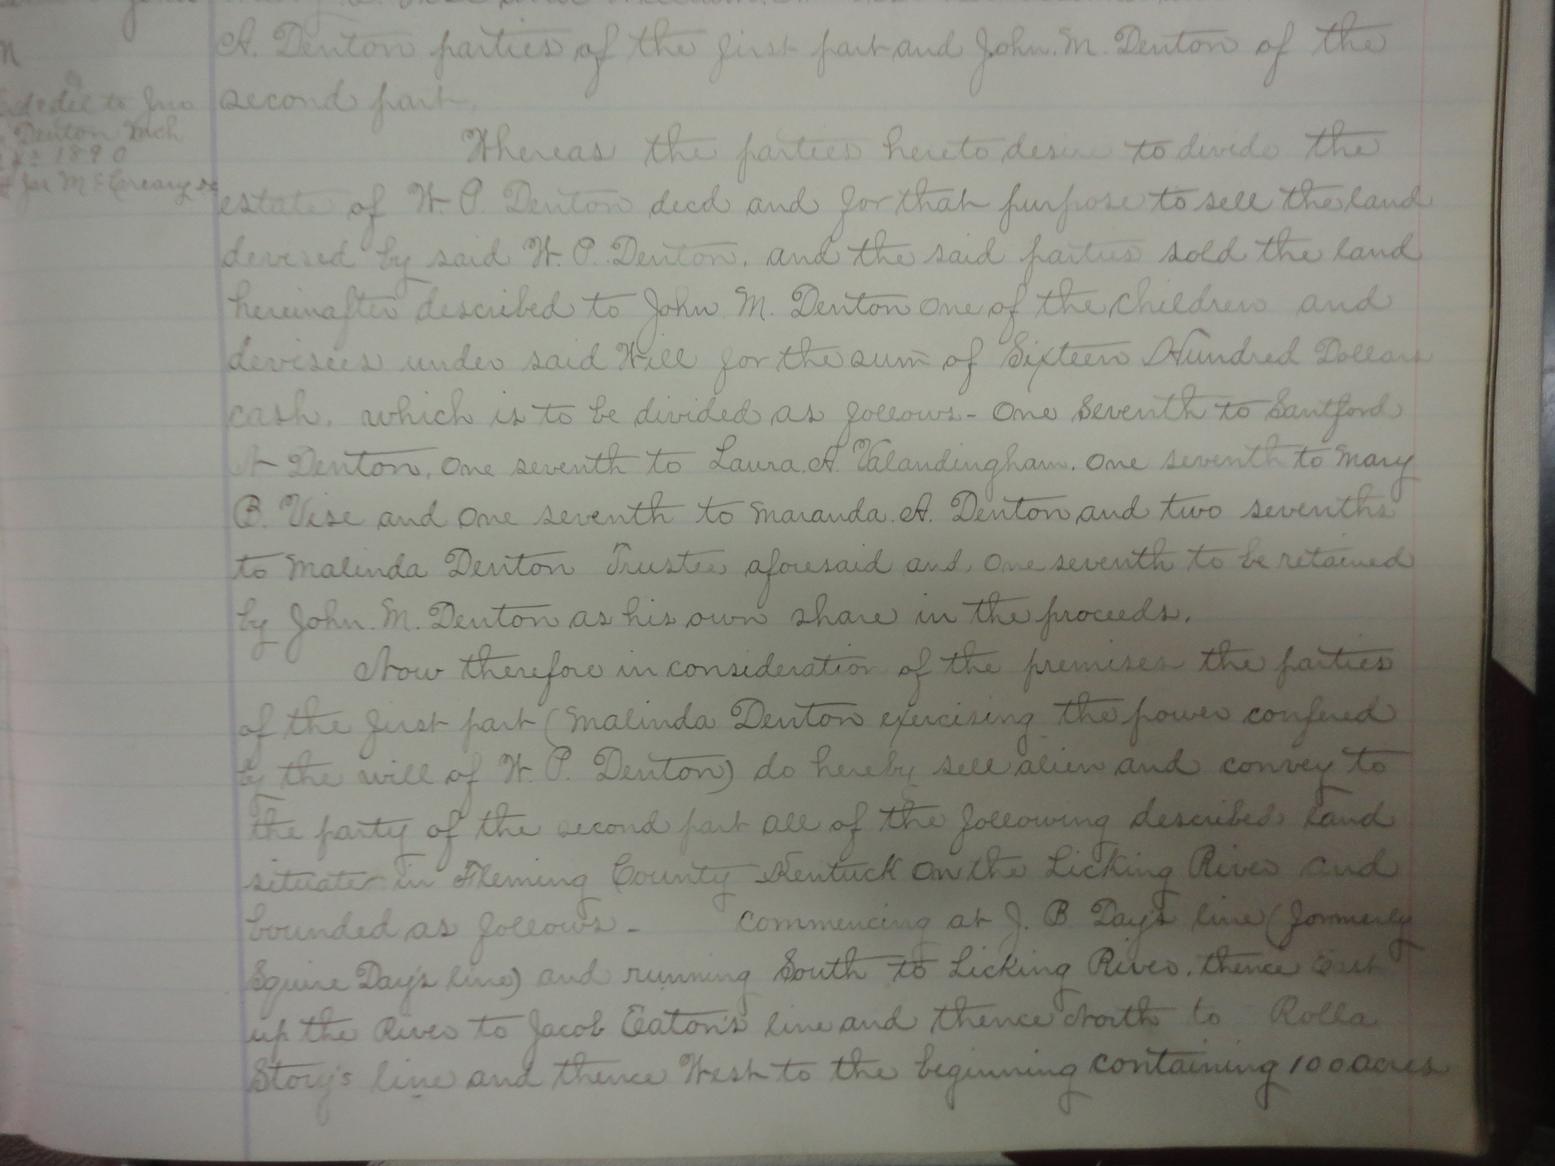 A. Denton parties of the first part and John. M. Denton of the
second part.
to Jno
Denton Mch
1890
Jas McCreary
Whereas the parties hereto desire to divide the
estate of W. P. Denton decd and for that purpose to sell the land
devised by said W. P. Denton, and the said parties sold the land
hereinafter described to John M. Denton one of the children and
devisees under said Will for the sum of Sixteen Hundred Dollars
cash, which is to be divided as follows - One Seventh to Santford
A Denton, One seventh to Laura. A. Valandingham. One seventh to Mary
B. Vise and One seventh to Maranda. A. Denton and two sevenths
to Malinda Denton Trustee aforesaid and, One seventh to be retained
by John. M. Denton as his own share in the proceeds.
Now therefore in consideration of the premises the parties
of the first part (Malinda Denton exercising the power confered
by the will of W. P. Denton) do hereby sell alien and convey to
the party of the second part all of the following described land
situate in Fleming County Kentuck On the Licking River and
bounded as follows - Commencing at J. B Day's line (formerly
Squire Day's line) and running South to Licking River. thence
up the River to Jacob Eaton's line and thence North to Rolla
Story's line and thence West to the beginning containing 100 acres